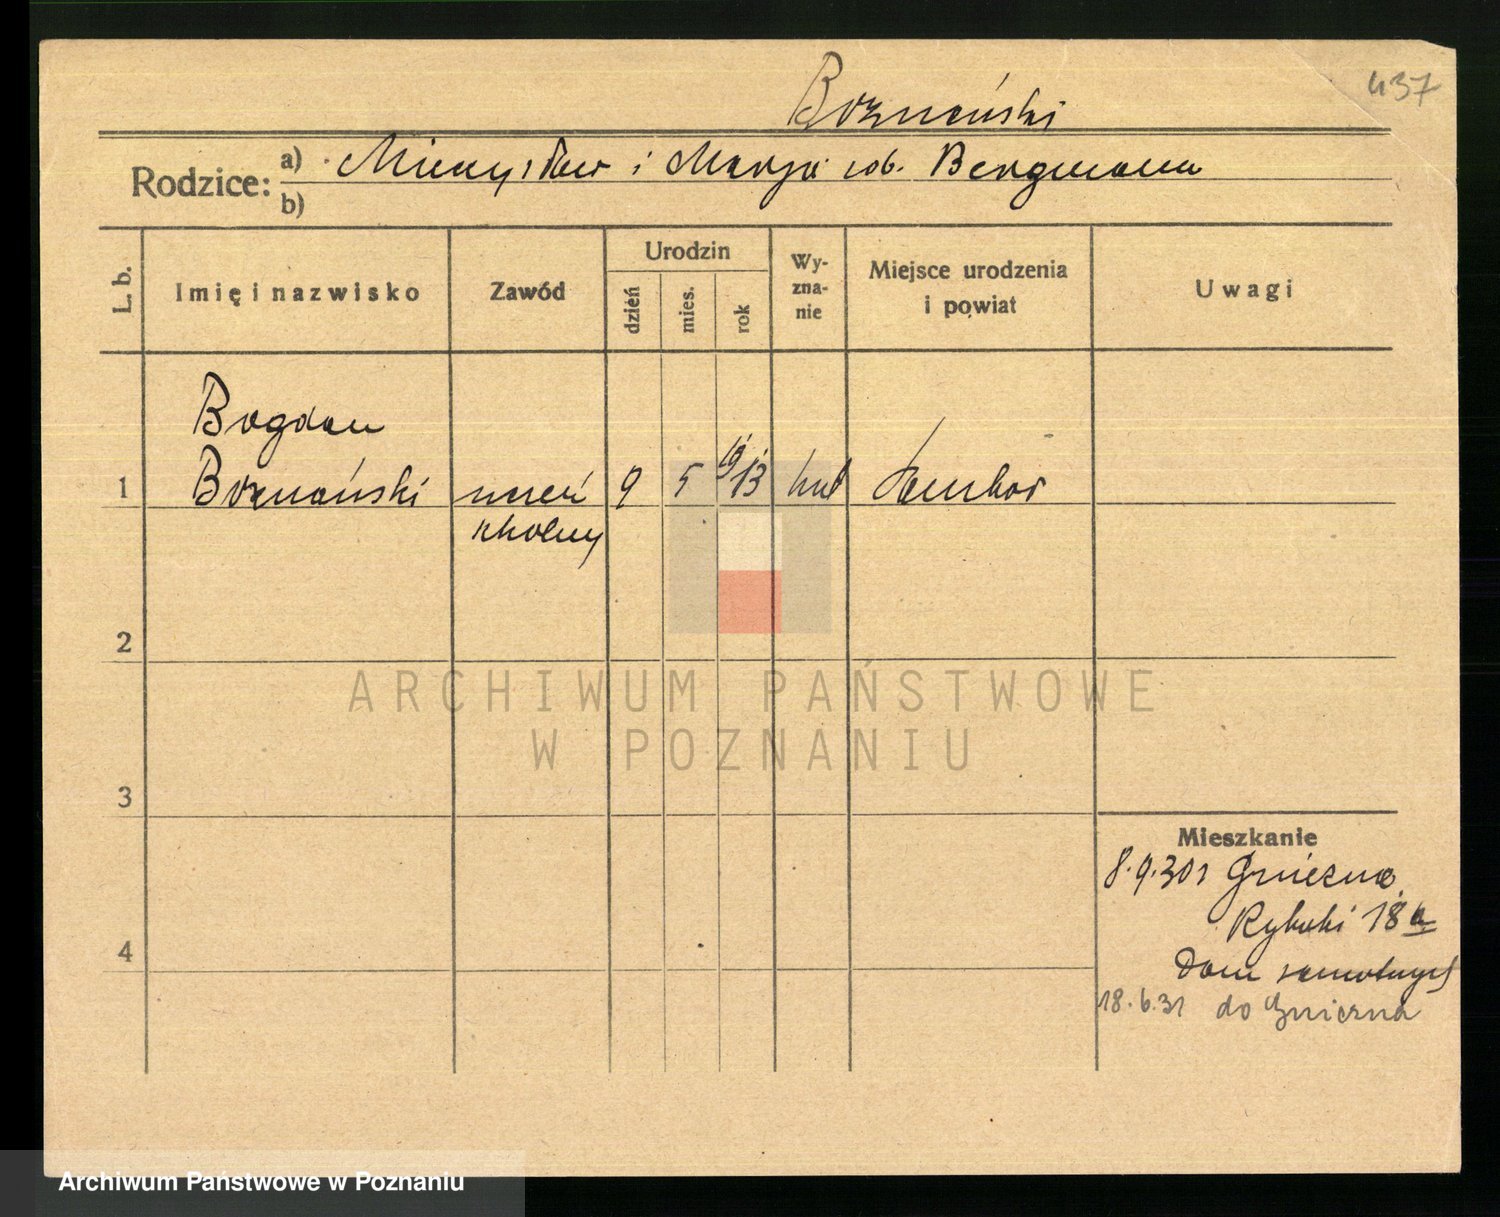 437
Boznański
Rodzice: a) Mieczysław i Marja rob. Bergmann
b)
L. b.
Imię i nazwisko
Zawód
Urodzin
dzień
mies.
rok
Wy-
zna-
nie
Miejsce urodzenia
i powiat
Uwagi
Bogdan
1 Boznański uczeń 9 5 1913 kat Sambor
szkolny
2
ARCHIWUM PAŃSTWOWE
W POZNANIU
3
Mieszkanie
8.9.30 Gniezna
Rybaki 18a
4
Dom samotnych
18.6.31 do Gniezna
Archiwum Państwowe w Poznaniu